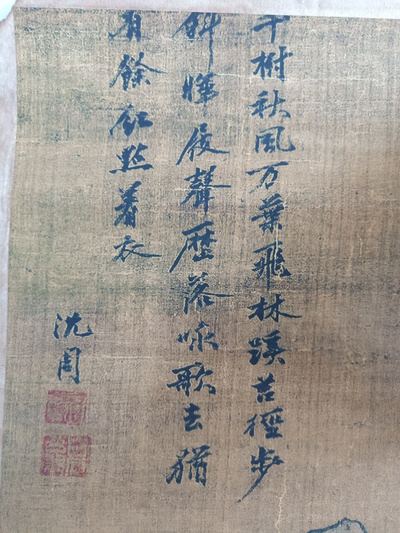 千樹秋風万葉飛林蹊苔徑步
斜暉屐聲歷落咏歌去猶
有餘紅點著衣
沈周